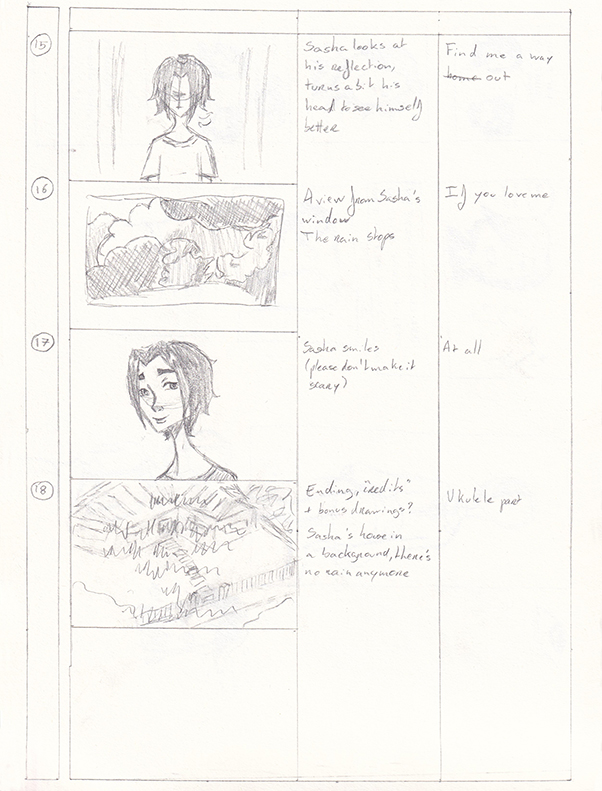 15
Sasha looks at
his reflection,
turns a bit his
head to see himself
better
Find me a way
home out
16
A view from Sasha's
window
The rain stops
If you love me
17
Sasha smiles
(please don't make it
scary)
At all
18
Ending, "credits"
+ bonus drawings?
Sasha's house in
a background, there's
no rain anymore
Ukulele part